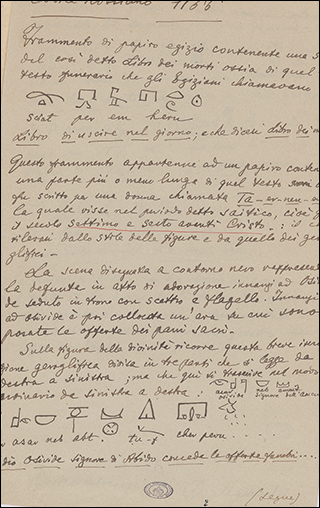 1168
Frammento di papiro egizio contenente una s
del così detto Libro dei morti ossia di quel
testo funerario che gli Egiziani chiamavano
sciat per em heru
Libro di uscire nel giorno, e che dicesi Libro dei m
Questo frammento appartenne ad un papiro conten
una parte più o meno lunga di quel testo
fu scritto per una donna chiamata
la quale visse nel periodo detto saitico, cioè
il secolo settimo e sesto avanti Cristo
rilevasi dallo stile delle figure e da quello dei ge
glifici.
La scena disegnata a contorno nero rappresen
la defunta in atto di adorazione innanzi ad Osi
de seduto in trono con scettro e flagello. Innanzi
ad osiride è poi collocata un'ara su cui sono
posate le offerte dei pani sacri.
Sulla figura della divinità ricorre questa breve
zione geroglifica divisa in tre parti che si legge da
destra a sinistra, ma che qui si trascrive nel modo
ordinario da sinistra a destra:
asar neb abt. cher peru
dio Osiride signore di Abido conceda le offerte funebri
(segue)